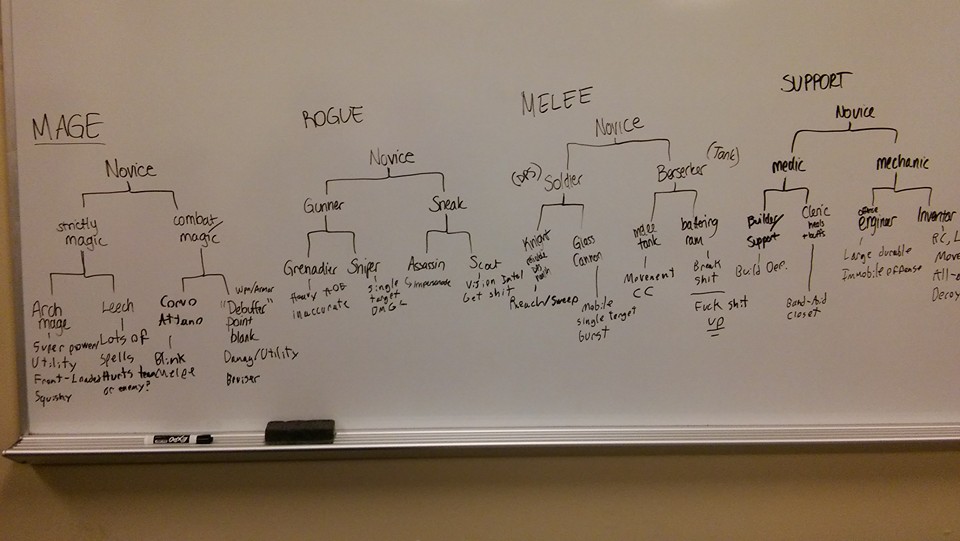 MAGE
Novice
strictly
magic
combat/
magic
Arch
mage
Super power/
Utility
Front-Loaded
Squishy
Leech
Lots of
spells
Hurts team
or enemy?
Corvo
Attano
Blink
Melee
Wpn/Armor
"Debuffer"
point
blank
Damag/Utility
Bruiser
ROGUE
Novice
Gunner
Sneak
Grenadier
Heavy AOE
inaccurate
Sniper
Single
target
DMG
Assassin
Impersonate
Scout
Vision Intel
Get shit
MELEE
Novice
(DPS) Soldier
Berserker (Tank)
Knight
Reach/Sweep
Glass
Cannon
mobile
single target
burst
melee
tank
Movement
CC
battering
ram
Break
shit
Fuck shit
up
SUPPORT
Novice
medic
mechanic
Builder/
Support
Build Def.
Cleric
heals
+ buffs
Band-Aid
closet
offense
enginer
Large durable
Immobile offense
Inventor
RC, L
Move
All-
Decoy